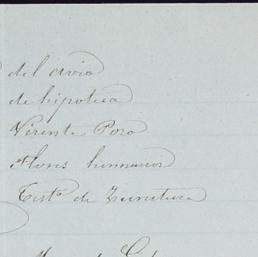 del avio
de hipoteca
Vicente Pozo
Flores hermanos
Testº de Escritura